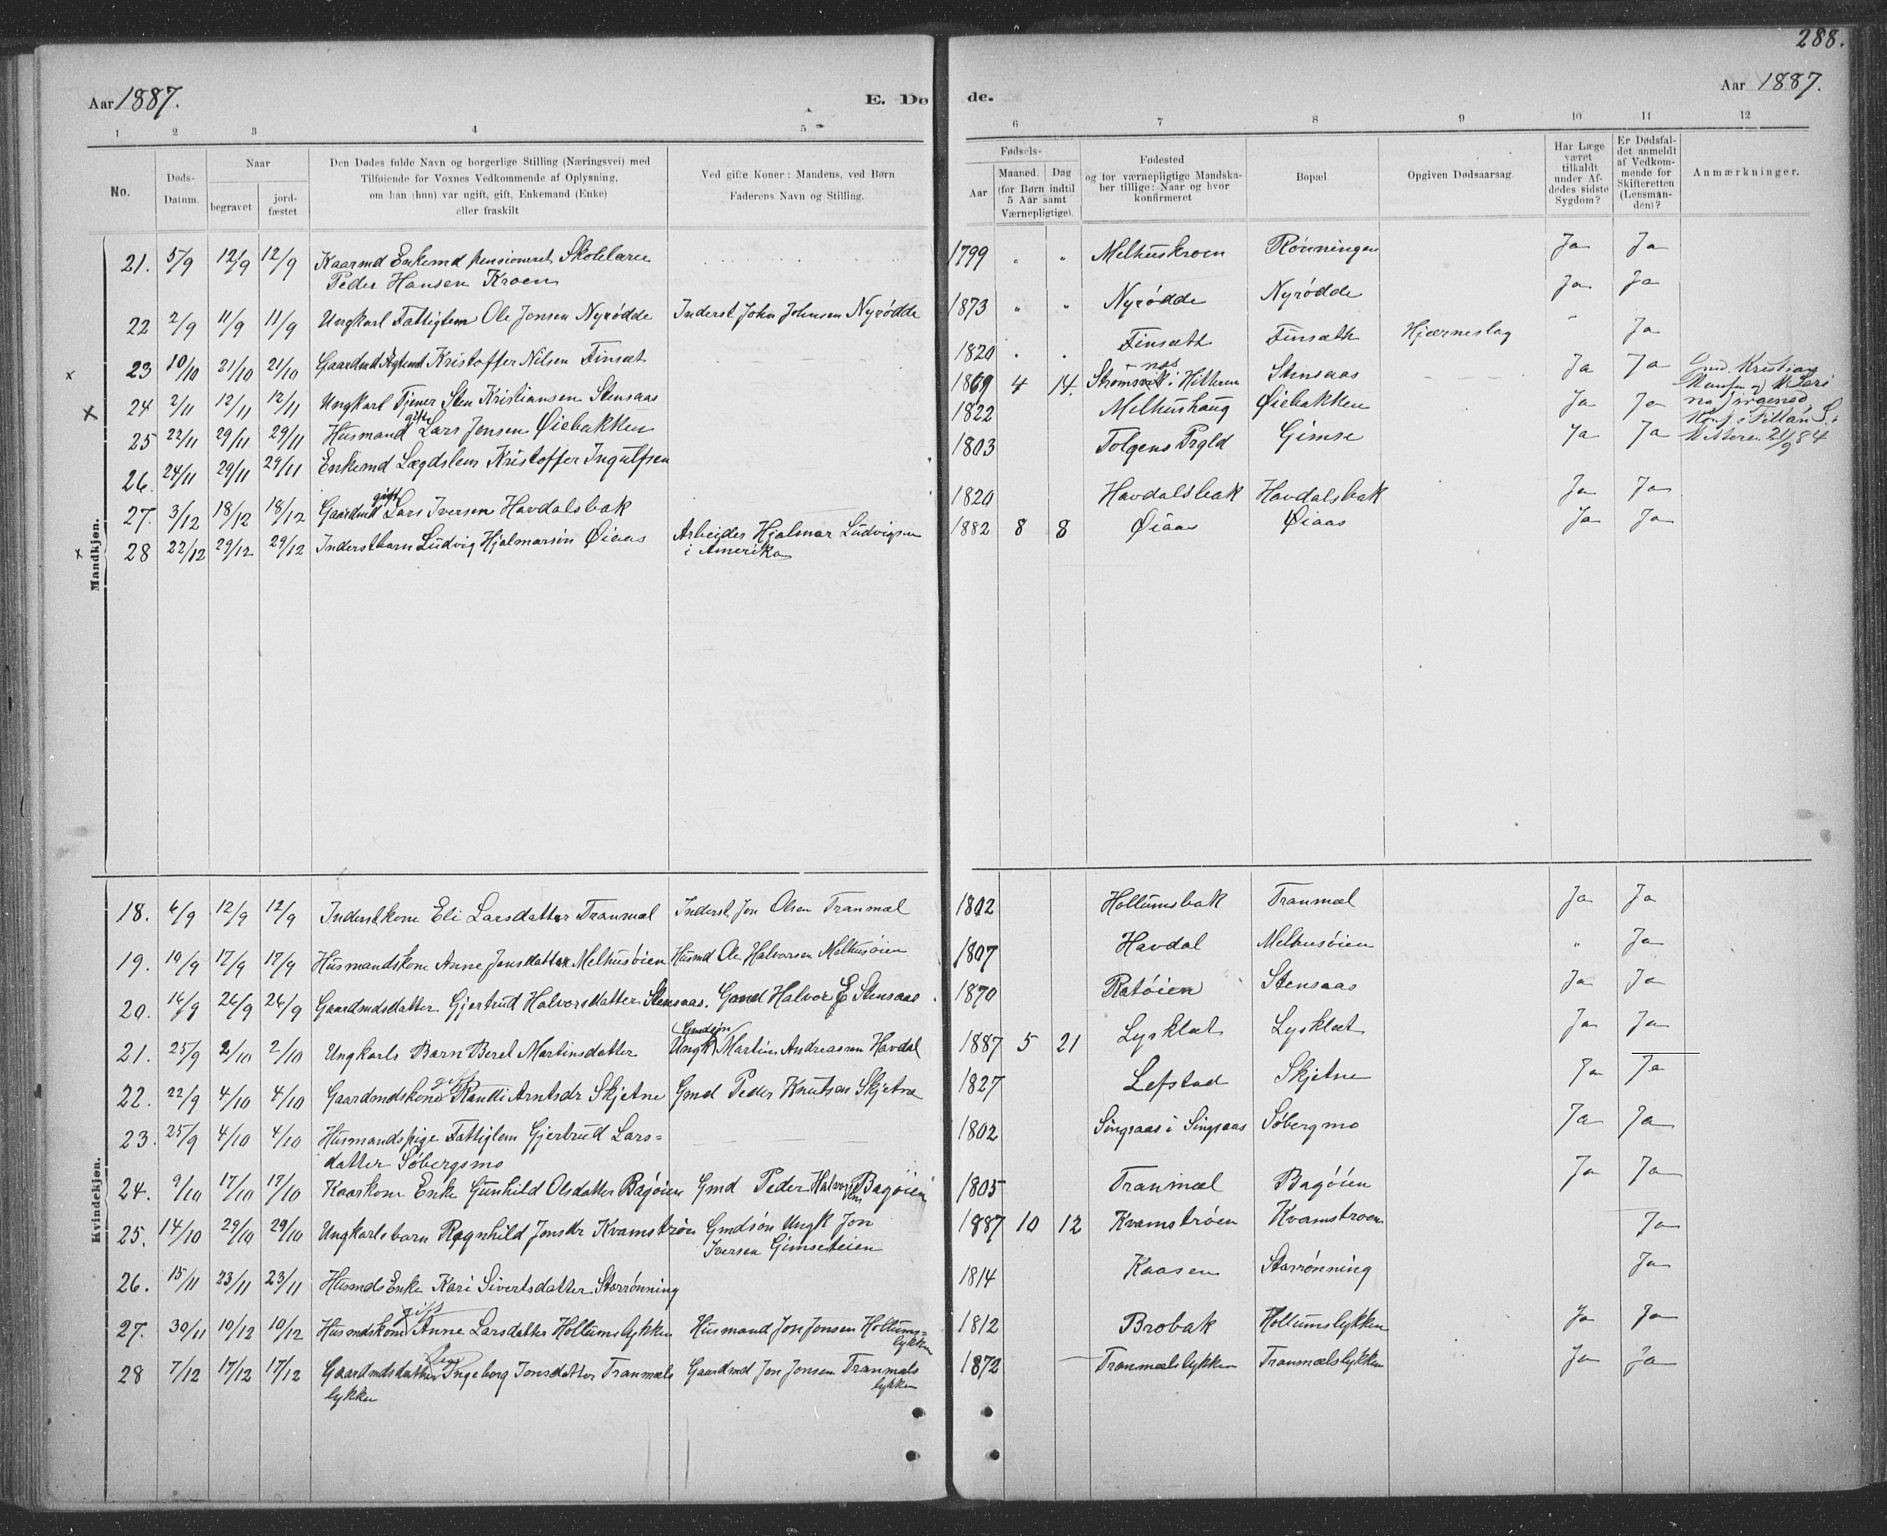 288.
Aar 1887. E. Dø de. Aar 1887.
1 2 3 4 5 6 7 8 9 10 11 12
No. Døds-Datum. Naar begravet jordfæstet Den Dødes fulde Navn og borgerlige Stilling (Næringsvei) med Tilføiende for Voxnes Vedkommende af Oplysning, om han (hun) var ugift, gift, Enkemand (Enke) eller fraskilt Ved gifte Koner: Mandens, ved Børn Faderens Navn og Stilling. Fødsels- Aar Maaned. Dag (for Børn indtil 5 Aar samt Værnepligtige). Fødested og for værnepligtige Mandskaber tillige: Naar og hvor konfirmeret Bopæl. Opgiven Dødsaarsag. Har Læge været tilkaldt under Afdødes sidste Sygdom? Er Dødsfaldet anmeldt af Vedkommende for Skifteretten (Lensmanden)? Anmærkninger.
Mandkjøn.
21. 5/9 12/9 12/9 Kaarmd Enkemd pensioneret Skolelærer 1799 " " Melhuskroen Rønningen Ja Ja
Peder Hansen Kroen
22 2/9 11/9 11/9 Ungkarl Fattiglem Ole Jonsen Nyrødde Inderst John Johnsen Nyrødde 1873 " " Nyrødde Nyrødde Ja Ja
x 23 10/10 21/10 21/10 Gaardmd Kristoffer Nilsen Finsæt 1820 " " Finsæth Finsæth Hjærneslag " Ja
x 24 2/11 12/11 12/11 Ungkarl Tjener Sten Kristiansen Stensaas 1869 4 14. Strømsvik i Hitteren Stensaas Ja Ja Gmd. Kristian
25 22/11 29/11 29/11 Husmand gift Lars Jonsen Øiebakken 1822 Melhushaug Øiebakken Ja Ja
26. 24/11 29/11 29/11 Enkemd Lægdslem Kristoffer Ingulfsen 1803 Tolgens Prgld Gimse Ja Ja 21/9 84
27. 3/12 18/12 18/12 Gaardmd gift Lars Iversen Havdalsbak 1820 Havdalsbak Havdalsbak Ja Ja
x 28 22/12 29/12 29/12 Inderstbarn Ludvig Hjalmarsøn Øiaas Arbeider Hjalmar Ludvigsen 1882 8 8 Øiaas Øiaas Ja Ja
i Amerika
Kvindekjøn.
18. 6/9 12/9 12/9 Inderstkone Eli Larsdatter Tranmæl Inderst Jon Olsen Tranmæl 1802 Hollumsbak Tranmæl Ja Ja
19. 10/9 17/9 17/9 Husmandskone Anne Jonsdatter Melhusøien Husmd Ole Halvorsen Melhusøien 1807 Havdal Melhusøien " Ja
20. 16/9 26/9 26/9 Gaardmdsdatter Gjertrud Halvorsdatter Stensaas. Gmd Halvor E Stensaas 1870 Ratøien Stensaas Ja Ja
21. 25/9 2/10 2/10 Ungkarls Barn Beret Martinsdatter Gmdsøn Ungk Martin Andreassen Havdal 1887 5 21 Lysklæt Lysklæt Ja Ja
22. 22/9 4/10 4/10 Gaardmdskone gift Randi Arntsdr Skjetne Gmd Peder Knutsen Skjetne 1827 Lefstad Skjetne Ja Ja
23. 25/9 4/10 4/10 Husmandspige Fattiglem Gjertrud Lars= 1802 Singsaas i Singsaas Søbergmo Ja Ja
datter Søbergsmo
24. 9/10 17/10 17/10 Kaarkone Enke Gunhild Olsdatter Bagøien Gmd Peder Halvorsen Bagøien 1805 Tranmæl Bagøien Ja Ja
25. 14/10 29/10 29/10 Ungkarlsbarn Ragnhild Jonsdr Kvamstrøen Gmdsøn Ungk Jon 1887 10 12 Kvamstrøen Kvamstroen Ja
Iversen Gimseteien
26. 15/11 23/11 23/11 Husmds Enke Kari Sivertsdatter Storrønning 1814 Kaasen Storrønning Ja
27. 30/11 10/12 10/12 Husmdskone gift Anne Larsdatter Hollumslykken Husmand Jon Jonsen Hollums= 1812 Brobak Hollumslykken Ja Ja
lykken
28 7/12 17/12 17/12 Gaardmdsdatter Ingeborg Jonsdatter Tranmæls Gaardmd Jon Jonsen Tranmæls 1872 Tranmælslykken Tranmælslykken Ja Ja
lykken lykken